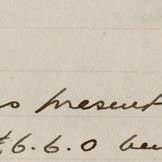 s present
£6.6.0 ben